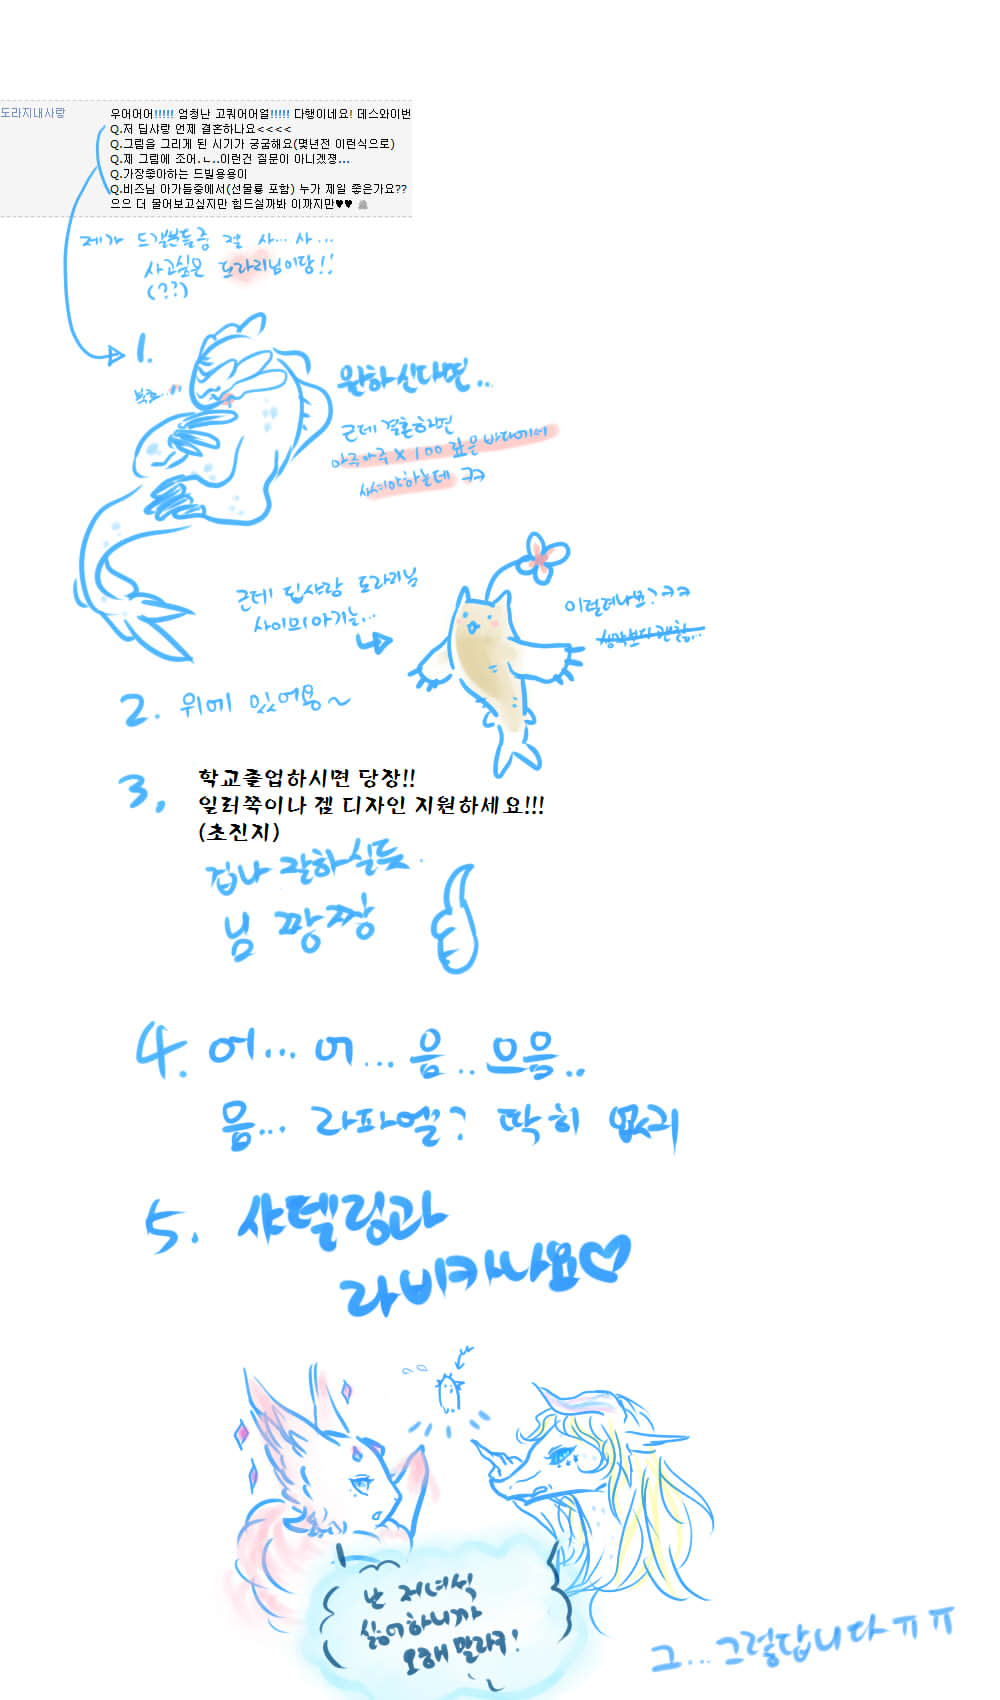 도라지내사랑
우어어어!!!!! 엄청난 고퀄어어얼!!!!! 다행이네요! 데스와이번
Q.저 딥샤랑 언제 결혼하나요<<<<
Q.그림을 그리게 된 시기가 궁굼해요(몇년전 이런식으로)
Q.제 그림에 조어.ㄴ..이런건 질문이 아니겠졍...
Q.가장좋아하는 드빌용용이
Q.비즈님 아가들중에서(선물룡 포함) 누가 제일 좋은가요??
으으 더 물어보고싶지만 힘드실까봐 이까지만♥♥
제가 드갤분들중 젤 사... 사...
사고싶은 도라리님이당!!
(??)
1.
원하신다면..
근데 결혼하면
아주아주 X 100 깊은 바다에서
사셔야하는데 ㅋㅋ
근데 딥샤랑 도라리님
사이의 아기는...
이럴려나요?ㅋㅋ
생각보다 괜춚...
2. 위에 있어용~
3, 학교졸업하시면 당장!!
일러쪽이나 겜 디자인 지원하세요!!!
(초진지)
겁나 잘하실듯.
님 짱짱
4. 어... 어... 음.. 으음..
음... 라파엘? 딱히 없긔
5. 샤델링과
라비카나요♡
난 저녀석
싫어하니까
오해 말라구!
그...그렇답니다ㅠㅠ